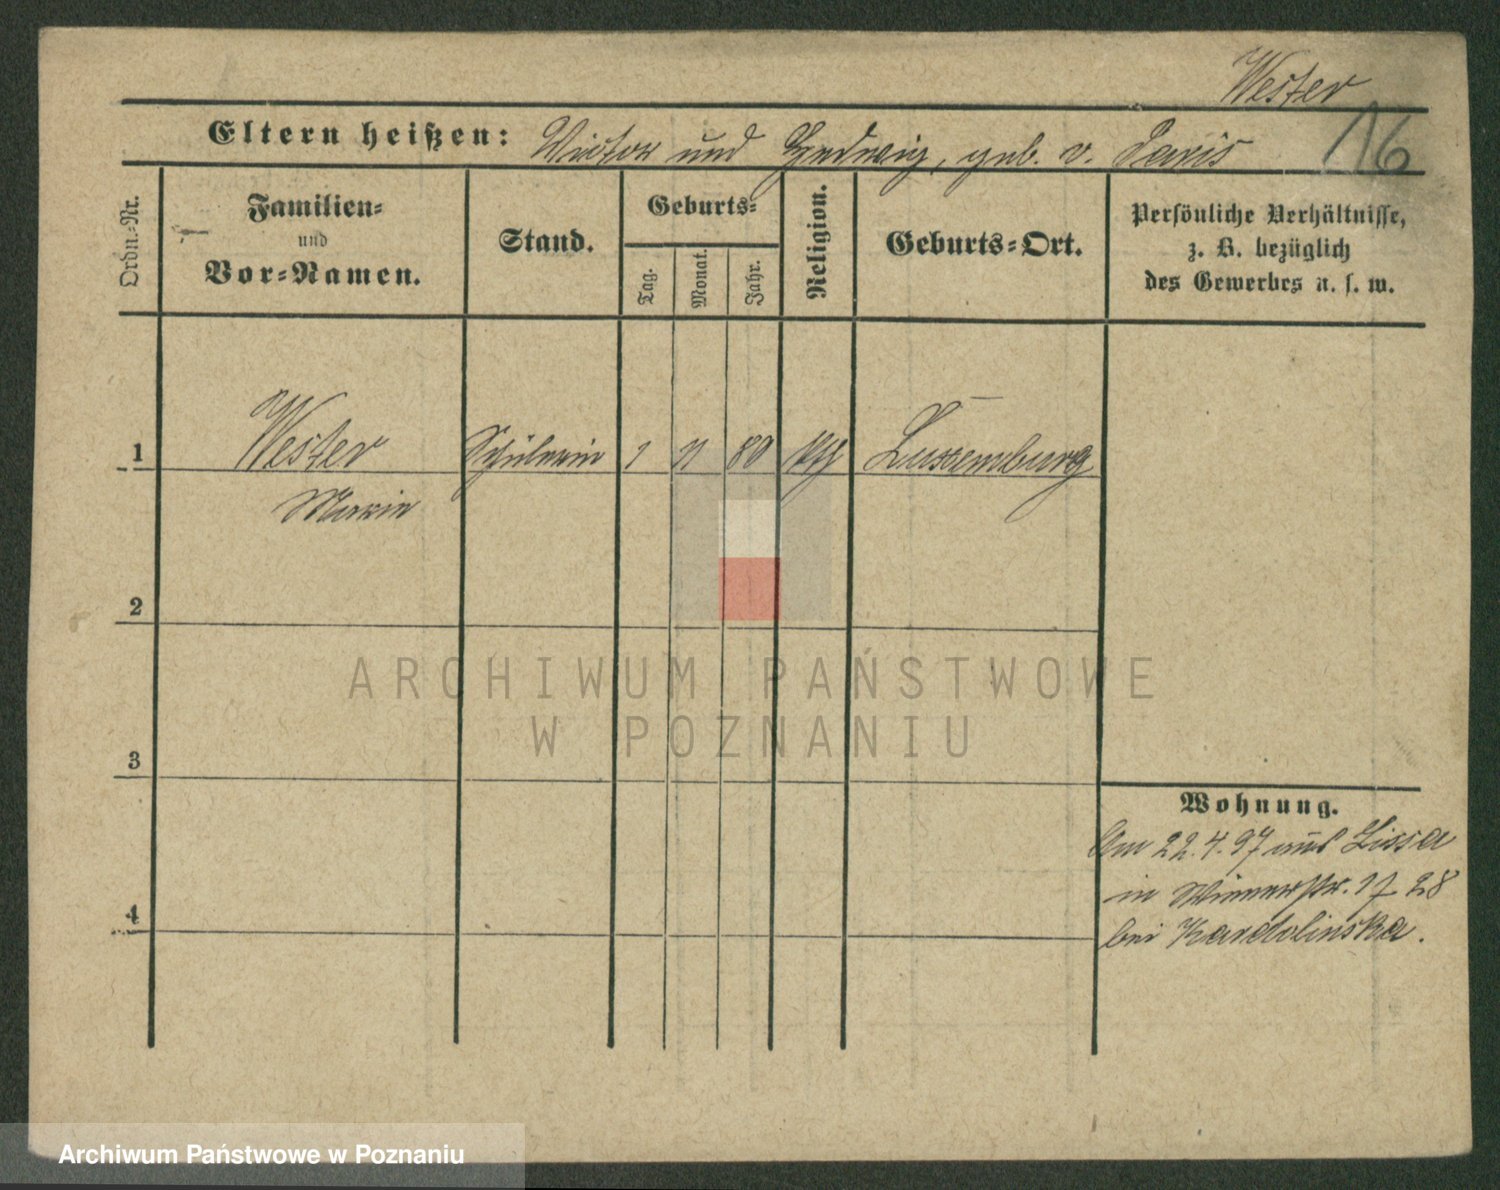 Wester
Eltern heißen: Victor und Hedwig, geb. v. Paris
16
Ordn.-Nr.
Familien-
und
Vor-Namen.
Stand.
Geburts-
Tag.
Monat.
Jahr.
Religion.
Geburts-Ort.
Persönliche Verhältnisse,
z. B. bezüglich
des Gewerbes u. s. w.
1 Wester Schülerin 1 11 80 kth Luxemburg
Marie
2
3
4
Wohnung.
Am 22.4.97 aus Lissa
in Wienerstr. 28
bei Kardolinska.
ARCHIWUM PAŃSTWOWE
W POZNANIU
Archiwum Państwowe w Poznaniu